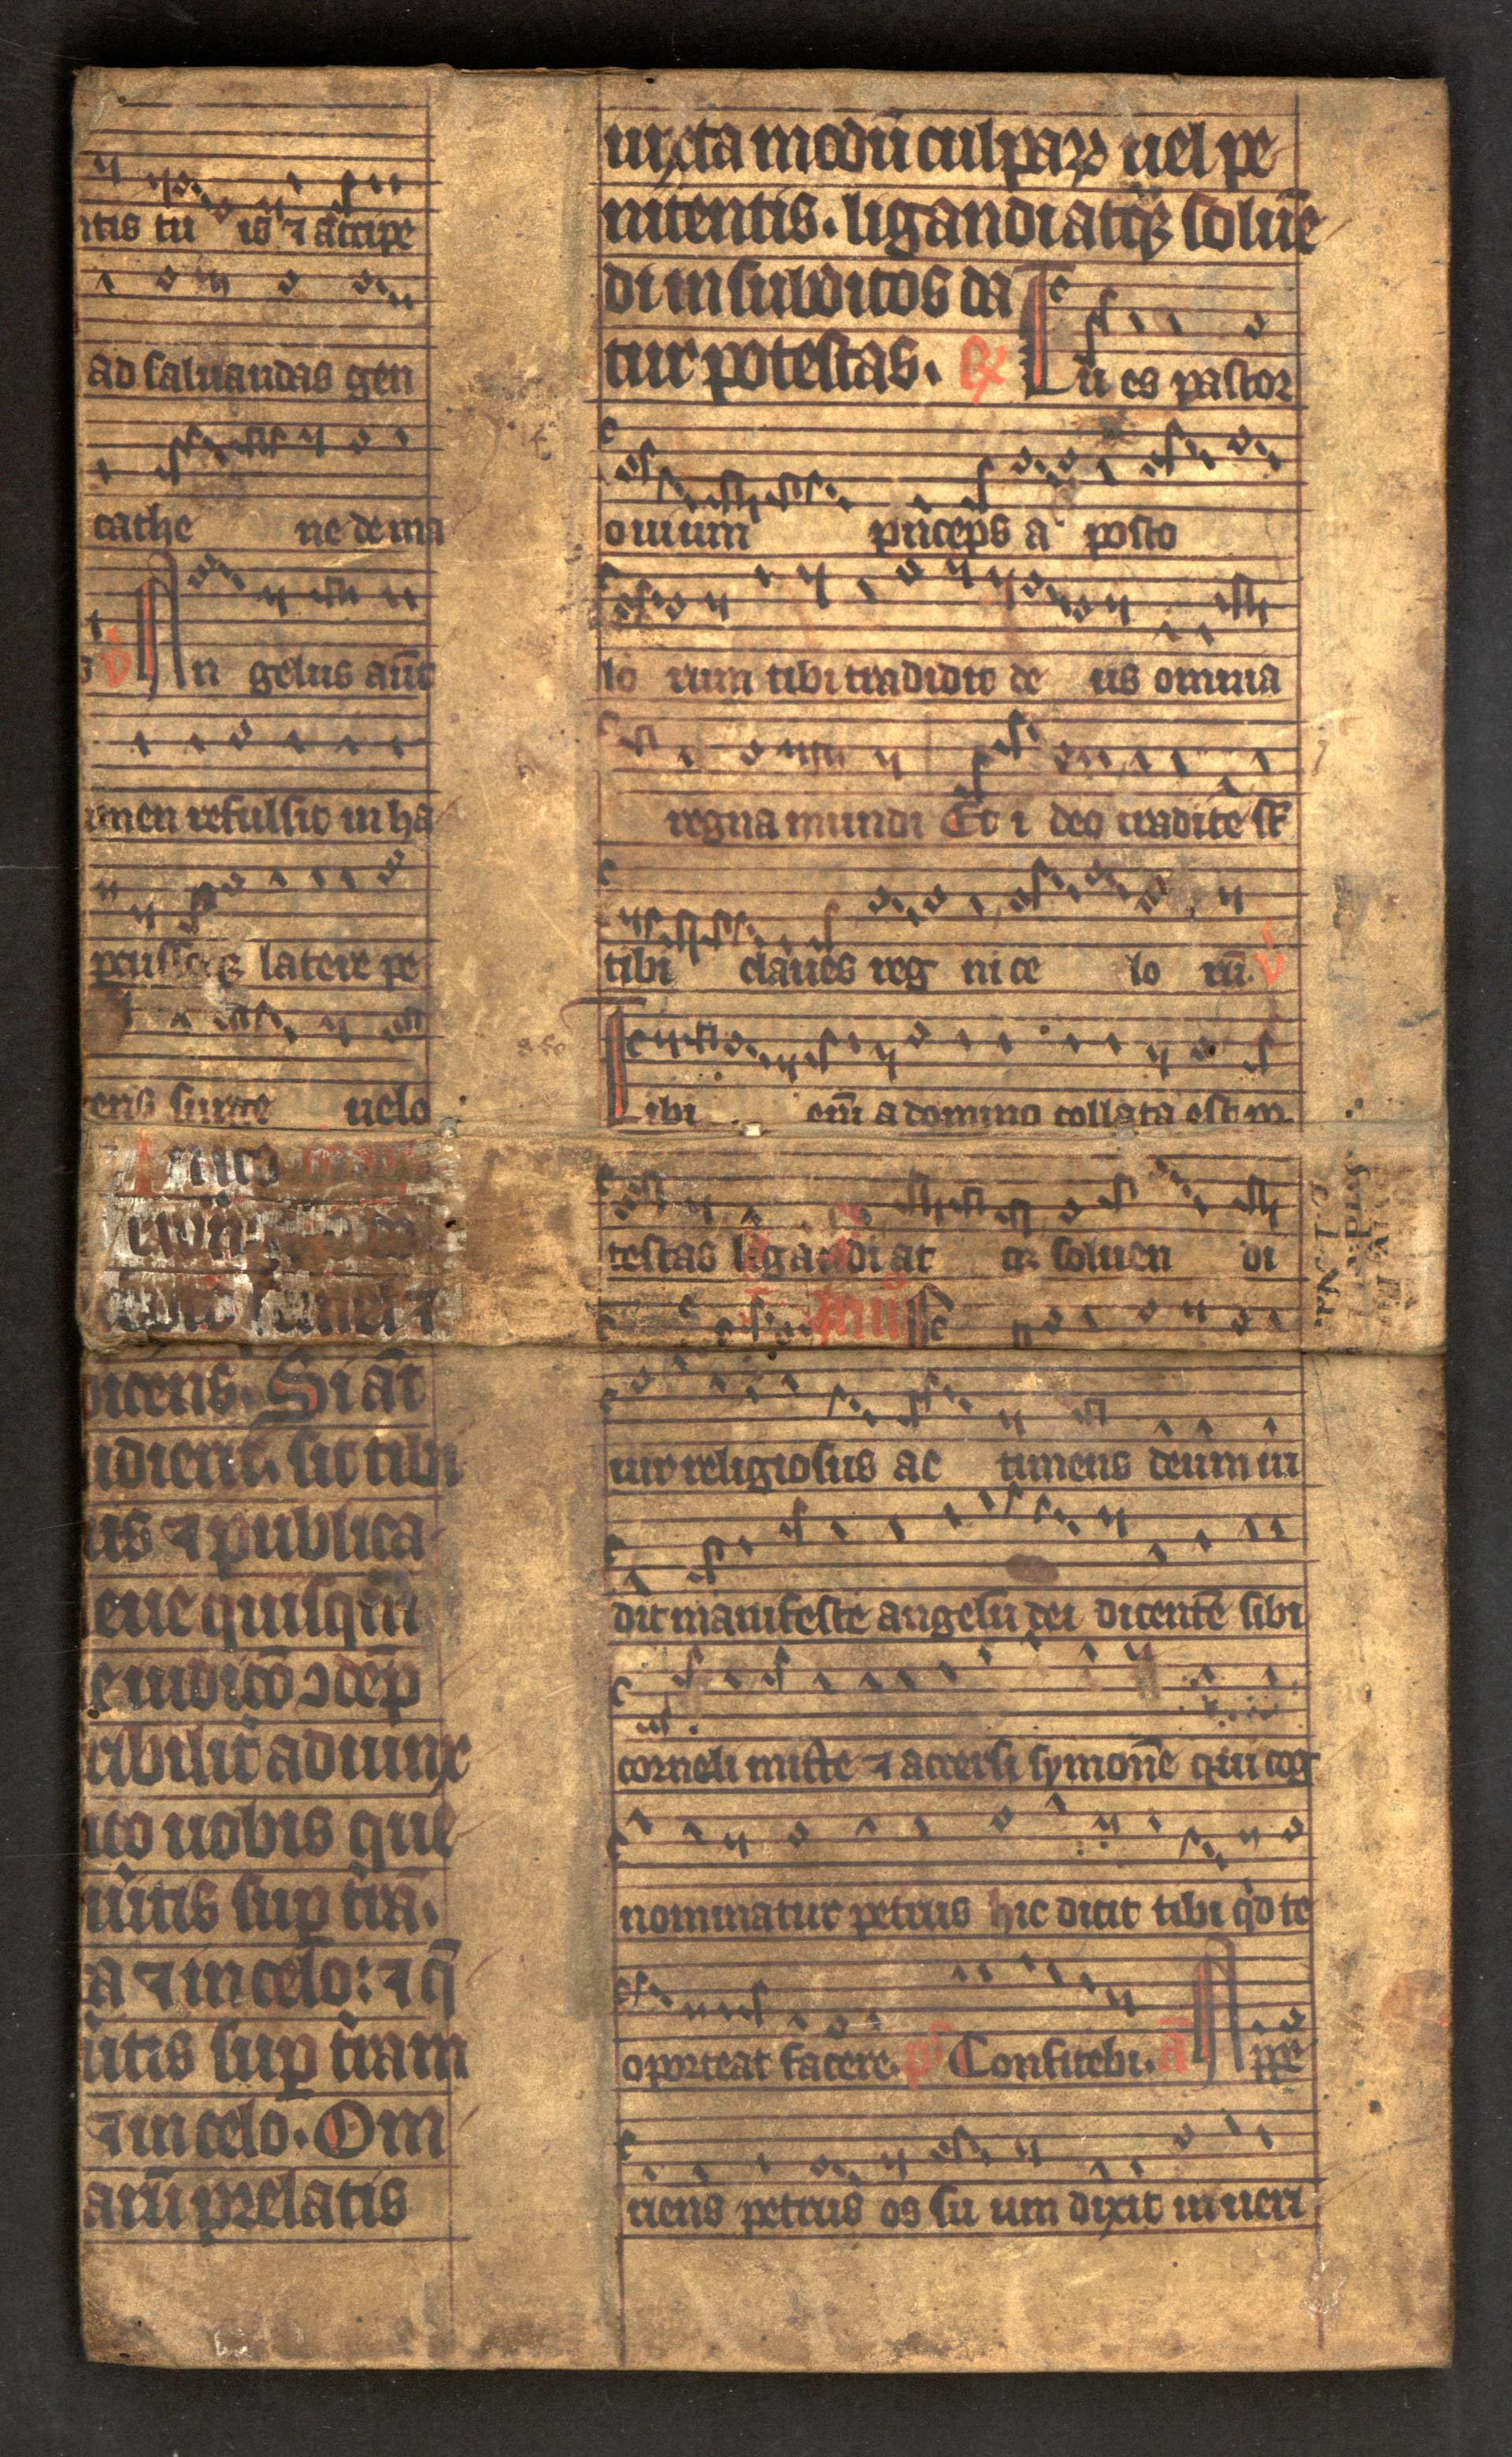 ntis tu is ⁊ accipe
ad saluandas gen
cathe ne de ma
ꝟ An gelus aūt
umen refulsit in ha
percussoqꝫ latere pe
ens surge uelo
dicens. Si aūt
udierit. sit tibi
us ⁊ publica
eue quisqm̄
e iudicō ↄdēp
cibilit̉ adiunx
ico uobis que
uitis sup̱ tr̄a.
a ⁊ in celo: ⁊ q̄
uitis sup̱ tr̄am
⁊ in celo. Om
arū prelatis
iuxta modū culpaꝝ uel pe
nitentis. ligandi atqꝫ soluē
di in subditos da
tur potestas. ℟ Tu es pastor
ouium p̉nceps a posto
lo rum tibi tradidit de us omnia
regna mundi Et i deo tradite sr̄
tibi claues reg ni ce lo rū. ꝟ
Tibi em̄ a domino collata est po
testas ligandi at qꝫ soluen di
uir religiosus ac timens deum ui
dit manifeste angelū dei dicentē sibi
corneli mitte ⁊ accersi symonē qui cog
nominatur petrus hic dicit tibi qd te
oporteat facere. ps Confitebi. a Appe
riens petrus os su um dixit in ueri